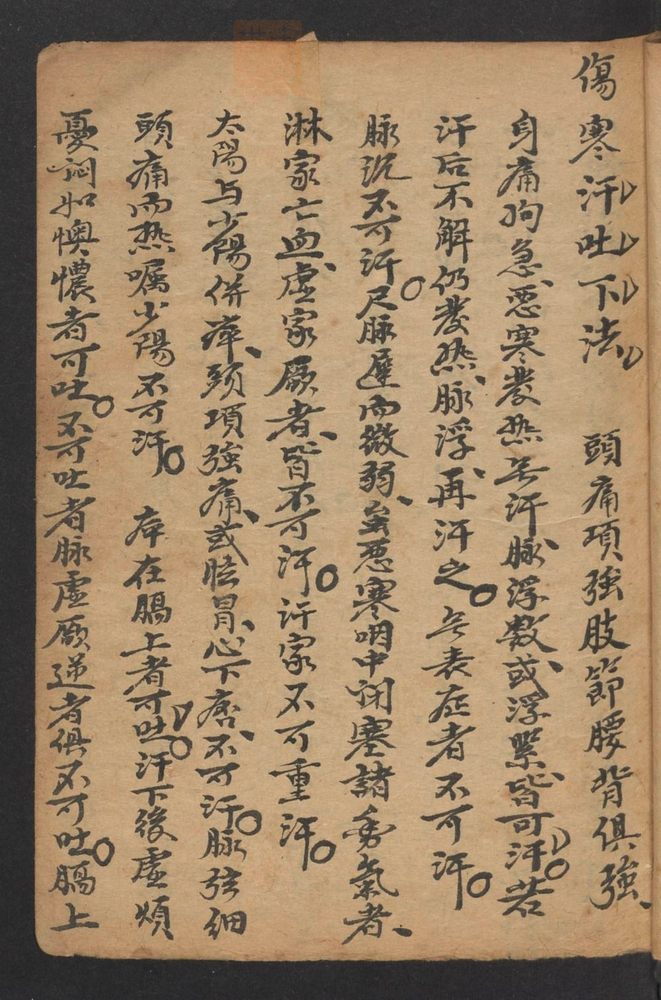 傷寒汗吐下法 頭痛項強肢節腰背俱強、
身痛拘急、惡寒發热无汗脉浮数或浮緊皆可汗。若
汗后不解仍發热、脉浮、再汗之。无表症者不可汗。
脉沉不可汗。尺脉遲而微弱、並惡寒咽中闭塞諸動氣者、
淋家亡血、虛家厥者、皆不可汗。汗家不可重汗。
太陽与少陽併病、頭項強痛、或眩冒、心下痞、不可汗。脉弦细
頭痛而热嘱少陽不可汗。 病在膈上者可吐。汗下後虛煩
憂闷如懊憹者可吐。不可吐者脉虛厥逆者俱不可吐。膈上